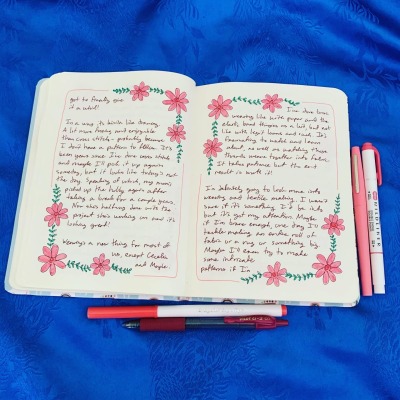 got to finally give
it a whirl!
It's a way to
than cross stitch - probably because
I don't have a pattern to follow. It's
been years since I've done cross stitch
and maybe I'll pick it up again
someday, but it looks like today's not
the day. Speaking of which, my mom's
picked up the hobby again after
taking a break for a couple years.
Now she's halfway done with the
project she's working on and it's
looking great!
Weaving's a new thing for most of
us, except Cecelia
and Maggie.
I've done basic
weaving like with paper and the
short, hand things as a kid, but not
like with legit looms and such. It's
fascinating to make and learn
about, as well as watching those
threads weave together into fabric.
It takes patience but the end
result is worth it!
I'm definitely going to look more into
weaving and textile making. I wasn't
sure if it's something I'd be into,
but it's got my attention. Maybe
if I'm brave enough, one day I'll
tackle making an entire roll of
fabric or a rug or something big.
Maybe I'll even try to make
some intricate
patterns if I'm